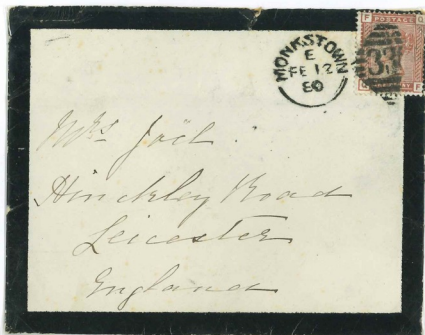 MONKSTOWN
E
FE 12
80
F G
POSTAGE
33
G F
Mrs Joël.
Hinckley Road
Leicester
England